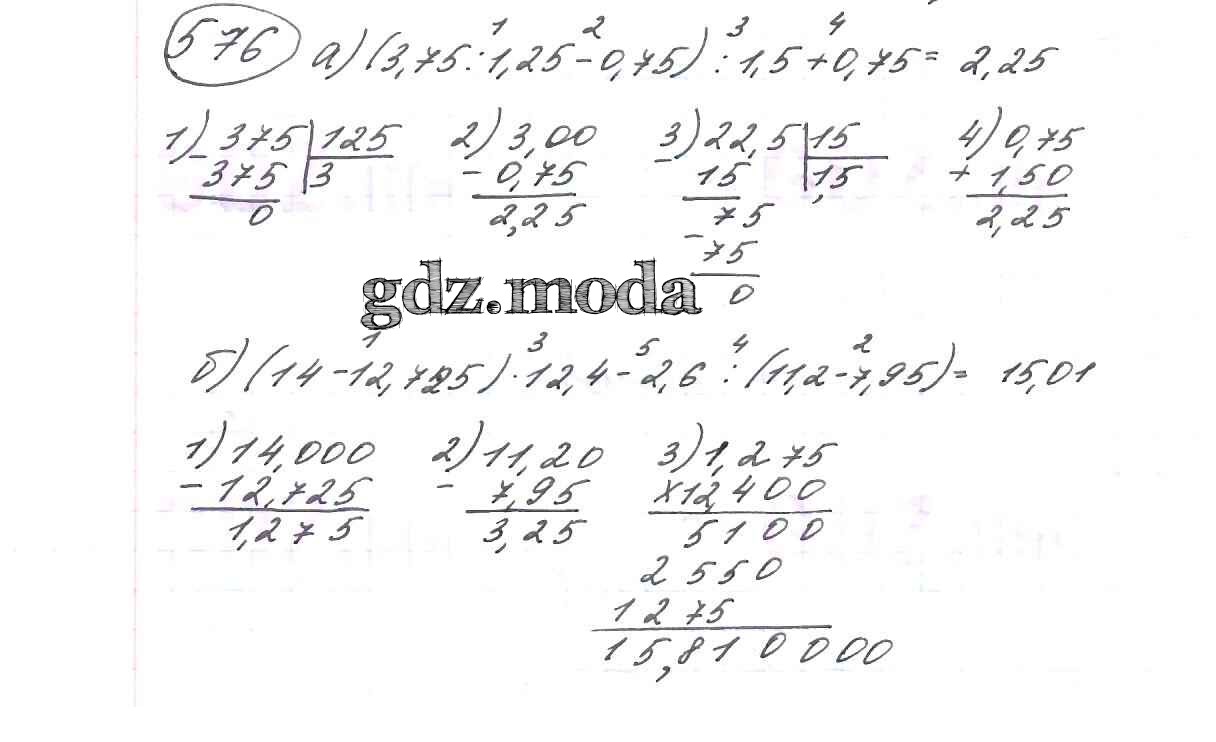 576 а) (3,75 : 1,25 - 0,75) : 1,5 + 0,75 = 2,25
1 2 3 4
1) 375 | 125 2) 3,00 3) 22,5 | 15 4) 0,75
- 375 | 3 - 0,75 - 15 | 1,5 + 1,50
0 2,25 75 2,25
- 75
0
gdz.moda
1 3 5 4 2
б) (14 - 12,725) · 12,4 - 2,6 : (11,2 - 7,95) = 15,01
1) 14,000 2) 11,20 3) 1,275
- 12,725 - 7,95 x 12,400
1,275 3,25 5100
2550
1275
15,810000